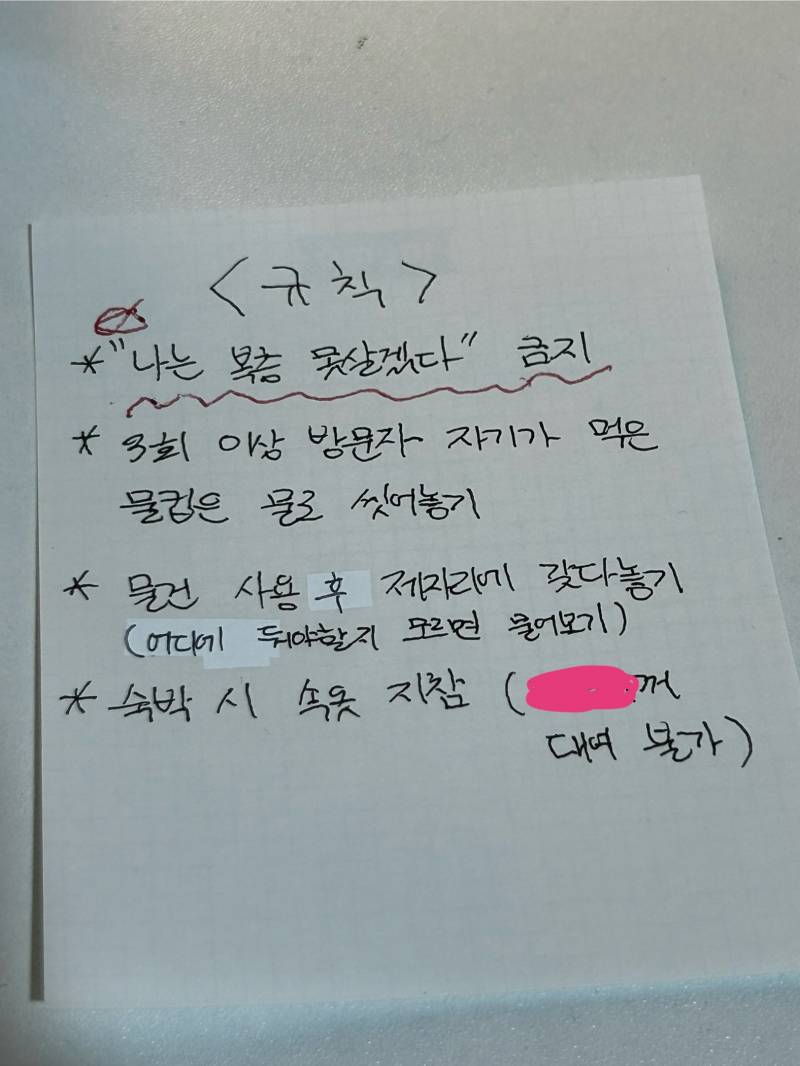 <규칙>
* "나는 복층 못살겠다" 금지
* 3회 이상 방문자 자기가 먹은
물컵은 물로 씻어놓기
* 물건 사용 후 제자리에 갖다놓기
(어디에 둬야할지 모르면 물어보기)
* 숙박 시 속옷 지참 (꺼
대여 불가)